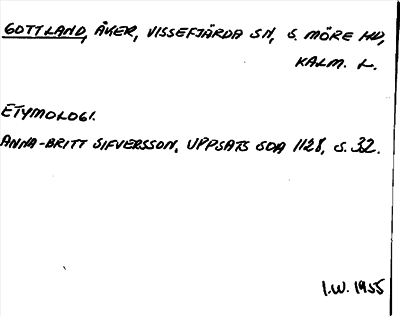 GOTTLAND, ÅKER, VISSEFJÄRDA SN, S. MÖRE HD,
KALM. L.
ETYMOLOGI.
ANNA-BRITT SIFVERSSON, UPPSATS SOA 1128, S. 32.
I.W. 1955